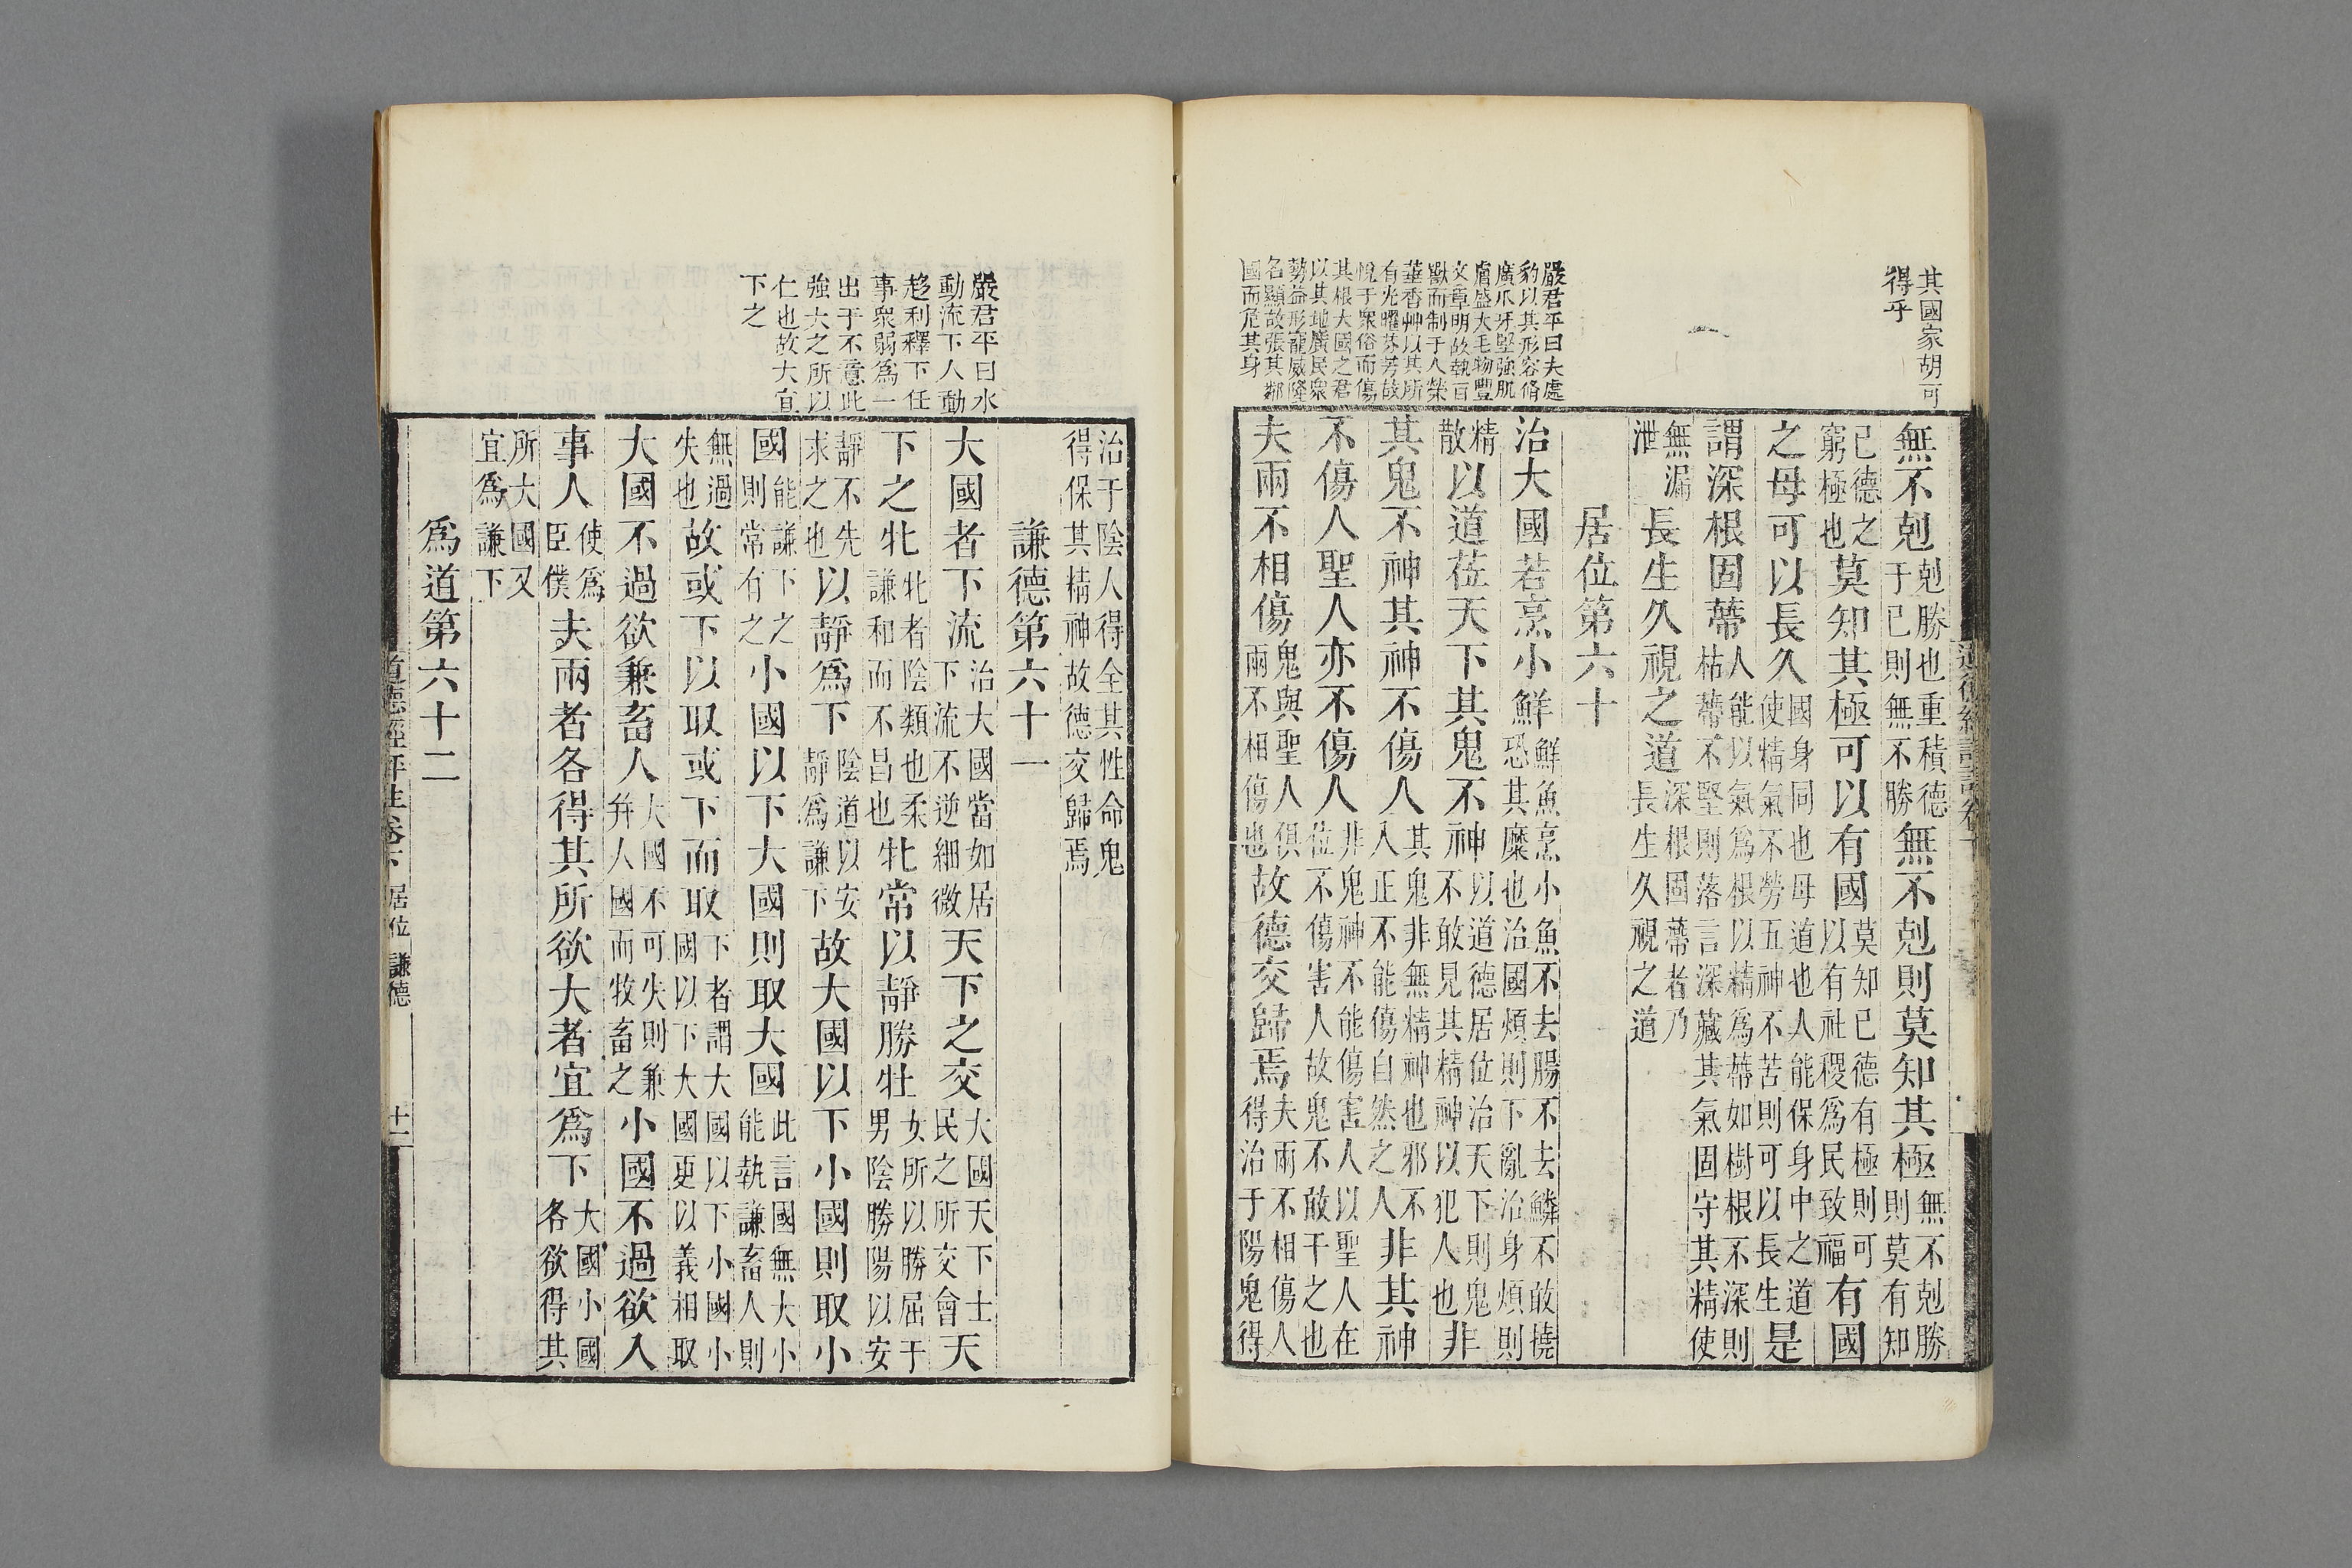 其國家胡可
得乎
嚴君平曰夫處
豹以其形容脩
廣爪牙堅強肌
膚盛大毛物豐
文章明故執百
獸而制于人榮
華香艸以其所
有光曜芬芳故
悅于衆俗而傷
其根大國之君
以其地廣民衆
勢益形寵威隆
名顯故張其鄰
國而危其身
無不剋剋勝也重積德于已則無不勝無不剋則莫知其極無不剋勝則莫有知
已德之窮極也莫知其極可以有國莫知已德有極則可以有社稷爲民致福有國
之母可以長久國身同也母道也人能保身中之道使精氣不勞五神不苦則可以長生是
謂深根固蔕人能以氣爲根以精爲蔕如樹根不深則枯蔕不堅則落言深藏其氣固守其精使
無漏泄長生久視之道深根固蔕者乃長生久視之道
居位第六十
治大國若烹小鮮鮮魚烹小魚不去腸不去鱗不敢撓恐其糜也治國煩則下亂治身煩則
精散以道莅天下其鬼不神以道德居位治天下則鬼不敢見其精神以犯人也非
其鬼不神其神不傷人其鬼非無精神也邪不入正不能傷自然之人非其神
不傷人聖人亦不傷人非鬼神不能傷害人以聖人在位不傷害人故鬼不敢干之也
夫兩不相傷鬼與聖人俱兩不相傷也故德交歸焉夫兩不相傷人得治于陽鬼得
嚴君平曰水
動流下人動
趨利釋下任
事衆弱爲一
出于不意此
強大之所以
仁也故大宜
下之
治于陰人得全其性命鬼得保其精神故德交歸焉
謙德第六十一
大國者下流治大國當如居下流不逆細微天下之交大國天下士民之所交會天
下之牝牝者陰類也柔謙和而不昌也牝常以靜勝牡女所以勝屈于男陰勝陽以安
靜不先求之也以靜爲下陰道以安靜爲謙下故大國以下小國則取小
國能謙下之則常有之小國以下大國則取大國此言國無大小能執謙畜人則
無過失也故或下以取或下而取下者謂大國以下小國小國以下大國更以義相取
大國不過欲兼畜人大國不可失則兼幷人國而牧畜之小國不過欲入
事人使爲臣僕夫兩者各得其所欲大者宜爲下大國小國各欲得其
所大國又宜爲謙下
爲道第六十二
道德經評註卷下 居位 謙德 十一